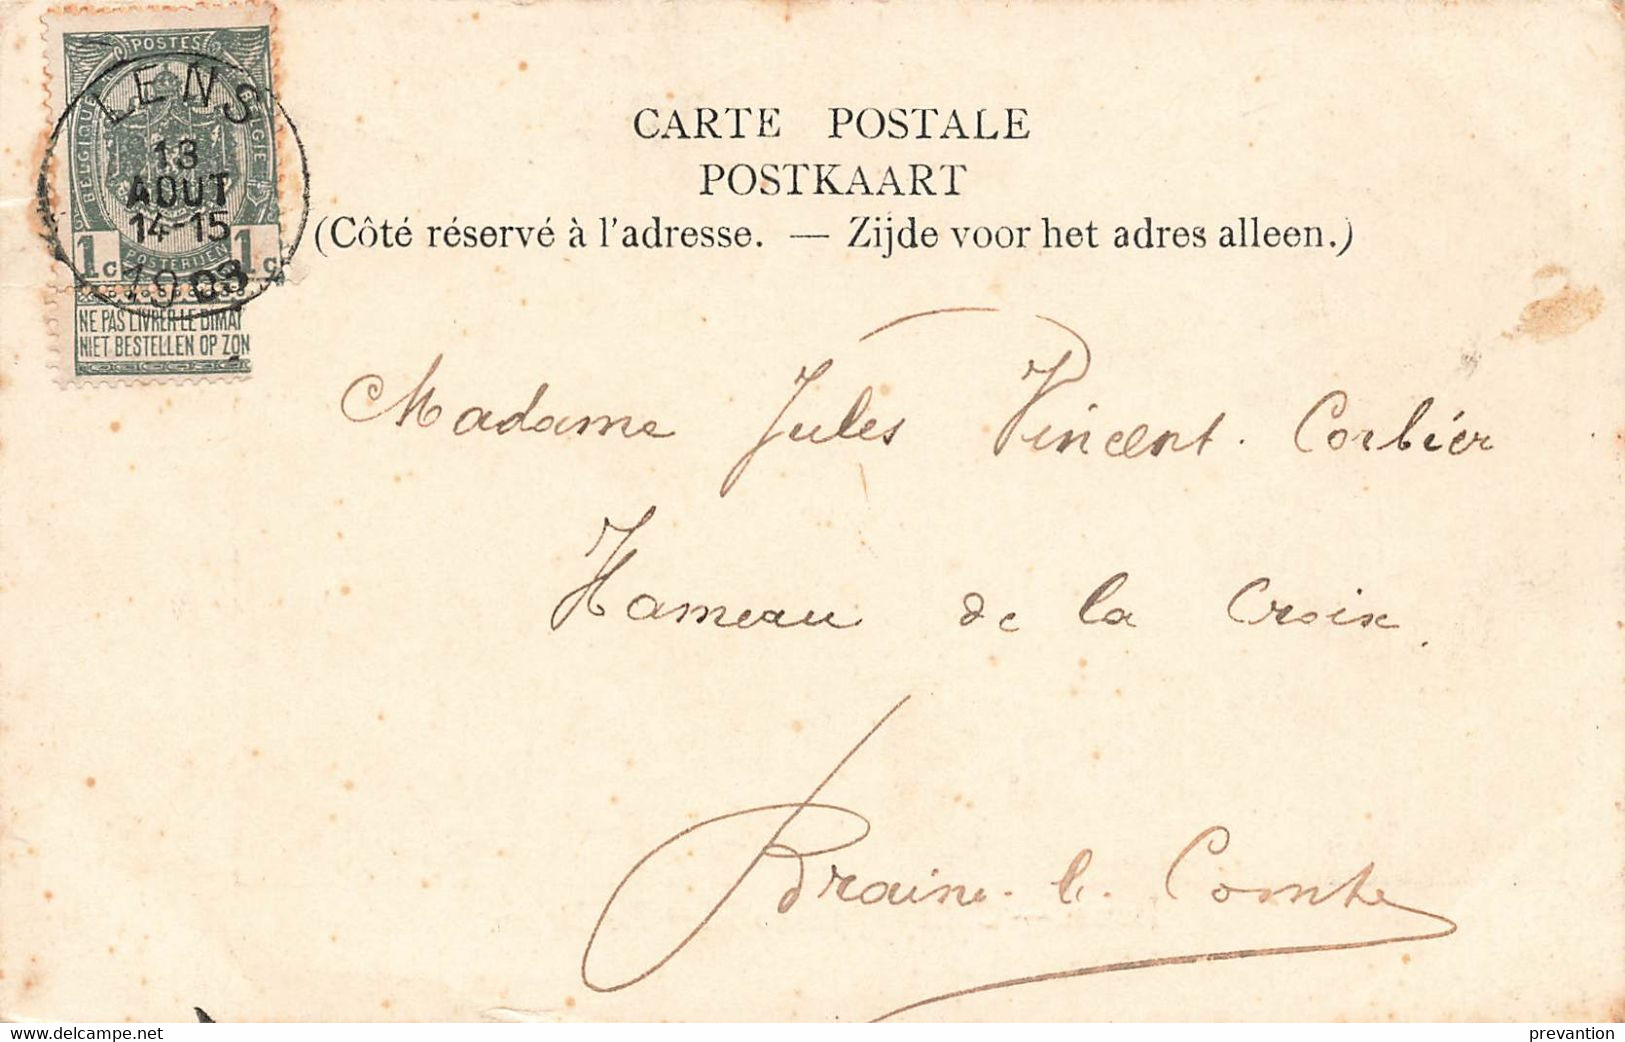 POSTES
LENS
BELGIQUE
BELGIE
13
AOUT
14-15
POSTERIJEN
1c 1c
1903
NE PAS LIVRER LE DIMAN
NIET BESTELLEN OP ZON
CARTE POSTALE
POSTKAART
(Côté réservé à l'adresse. — Zijde voor het adres alleen.)
Madame Jules Vincent. Corbier
Hameau de la Croix.
Braine-le-Comte
www.delcampe.net
prevantion